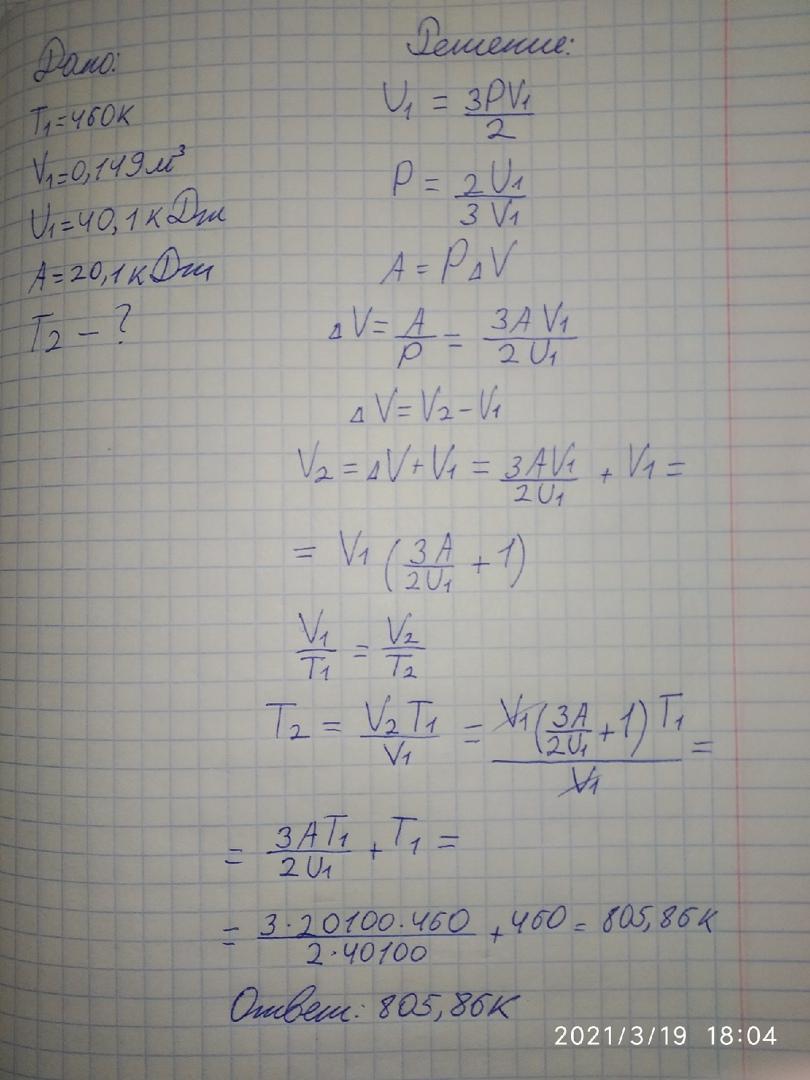 Дано:
T₁=460К
V₁=0,149м³
U₁=40,1кДж
A=20,1кДж
T₂ - ?
Решение:
U₁ = 3PV₁/2
P = 2U₁/3V₁
A = PΔV
ΔV = A/P = 3AV₁/2U₁
ΔV = V₂ - V₁
V₂ = ΔV + V₁ = 3AV₁/2U₁ + V₁ =
= V₁ (3A/2U₁ + 1)
V₁/T₁ = V₂/T₂
T₂ = V₂T₁/V₁ = V₁(3A/2U₁ + 1)T₁/V₁ =
= 3AT₁/2U₁ + T₁ =
= 3·20100·460/2·40100 + 460 = 805,86К
Ответ: 805,86К
2021/3/19 18:04